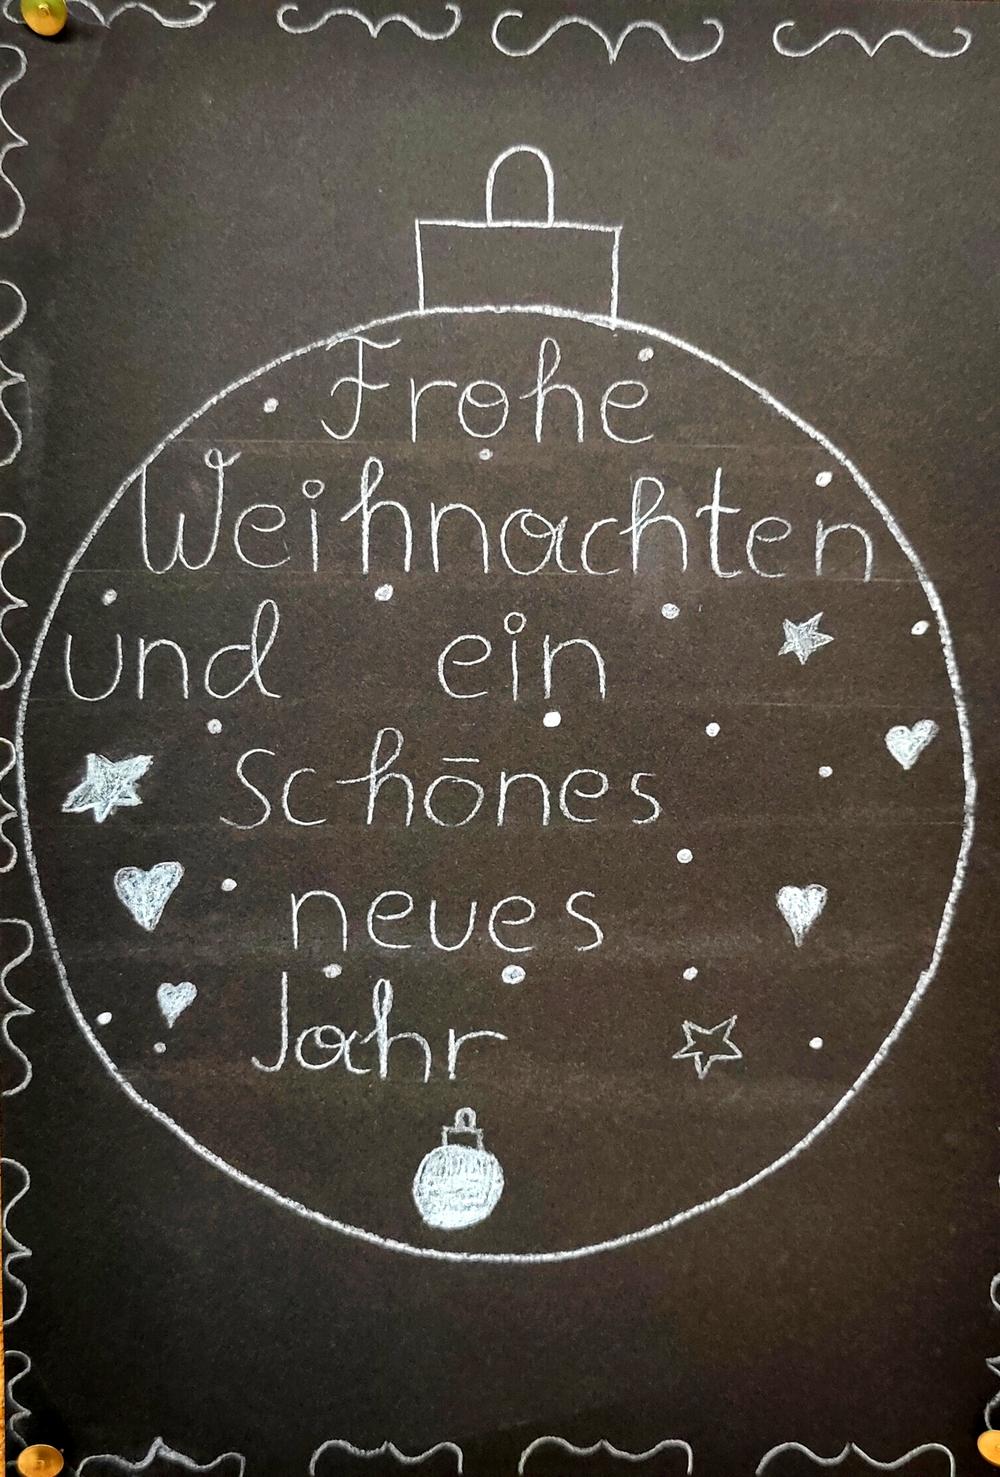 Frohe
Weihnachten
und ein
schōnes
neues
Jahr